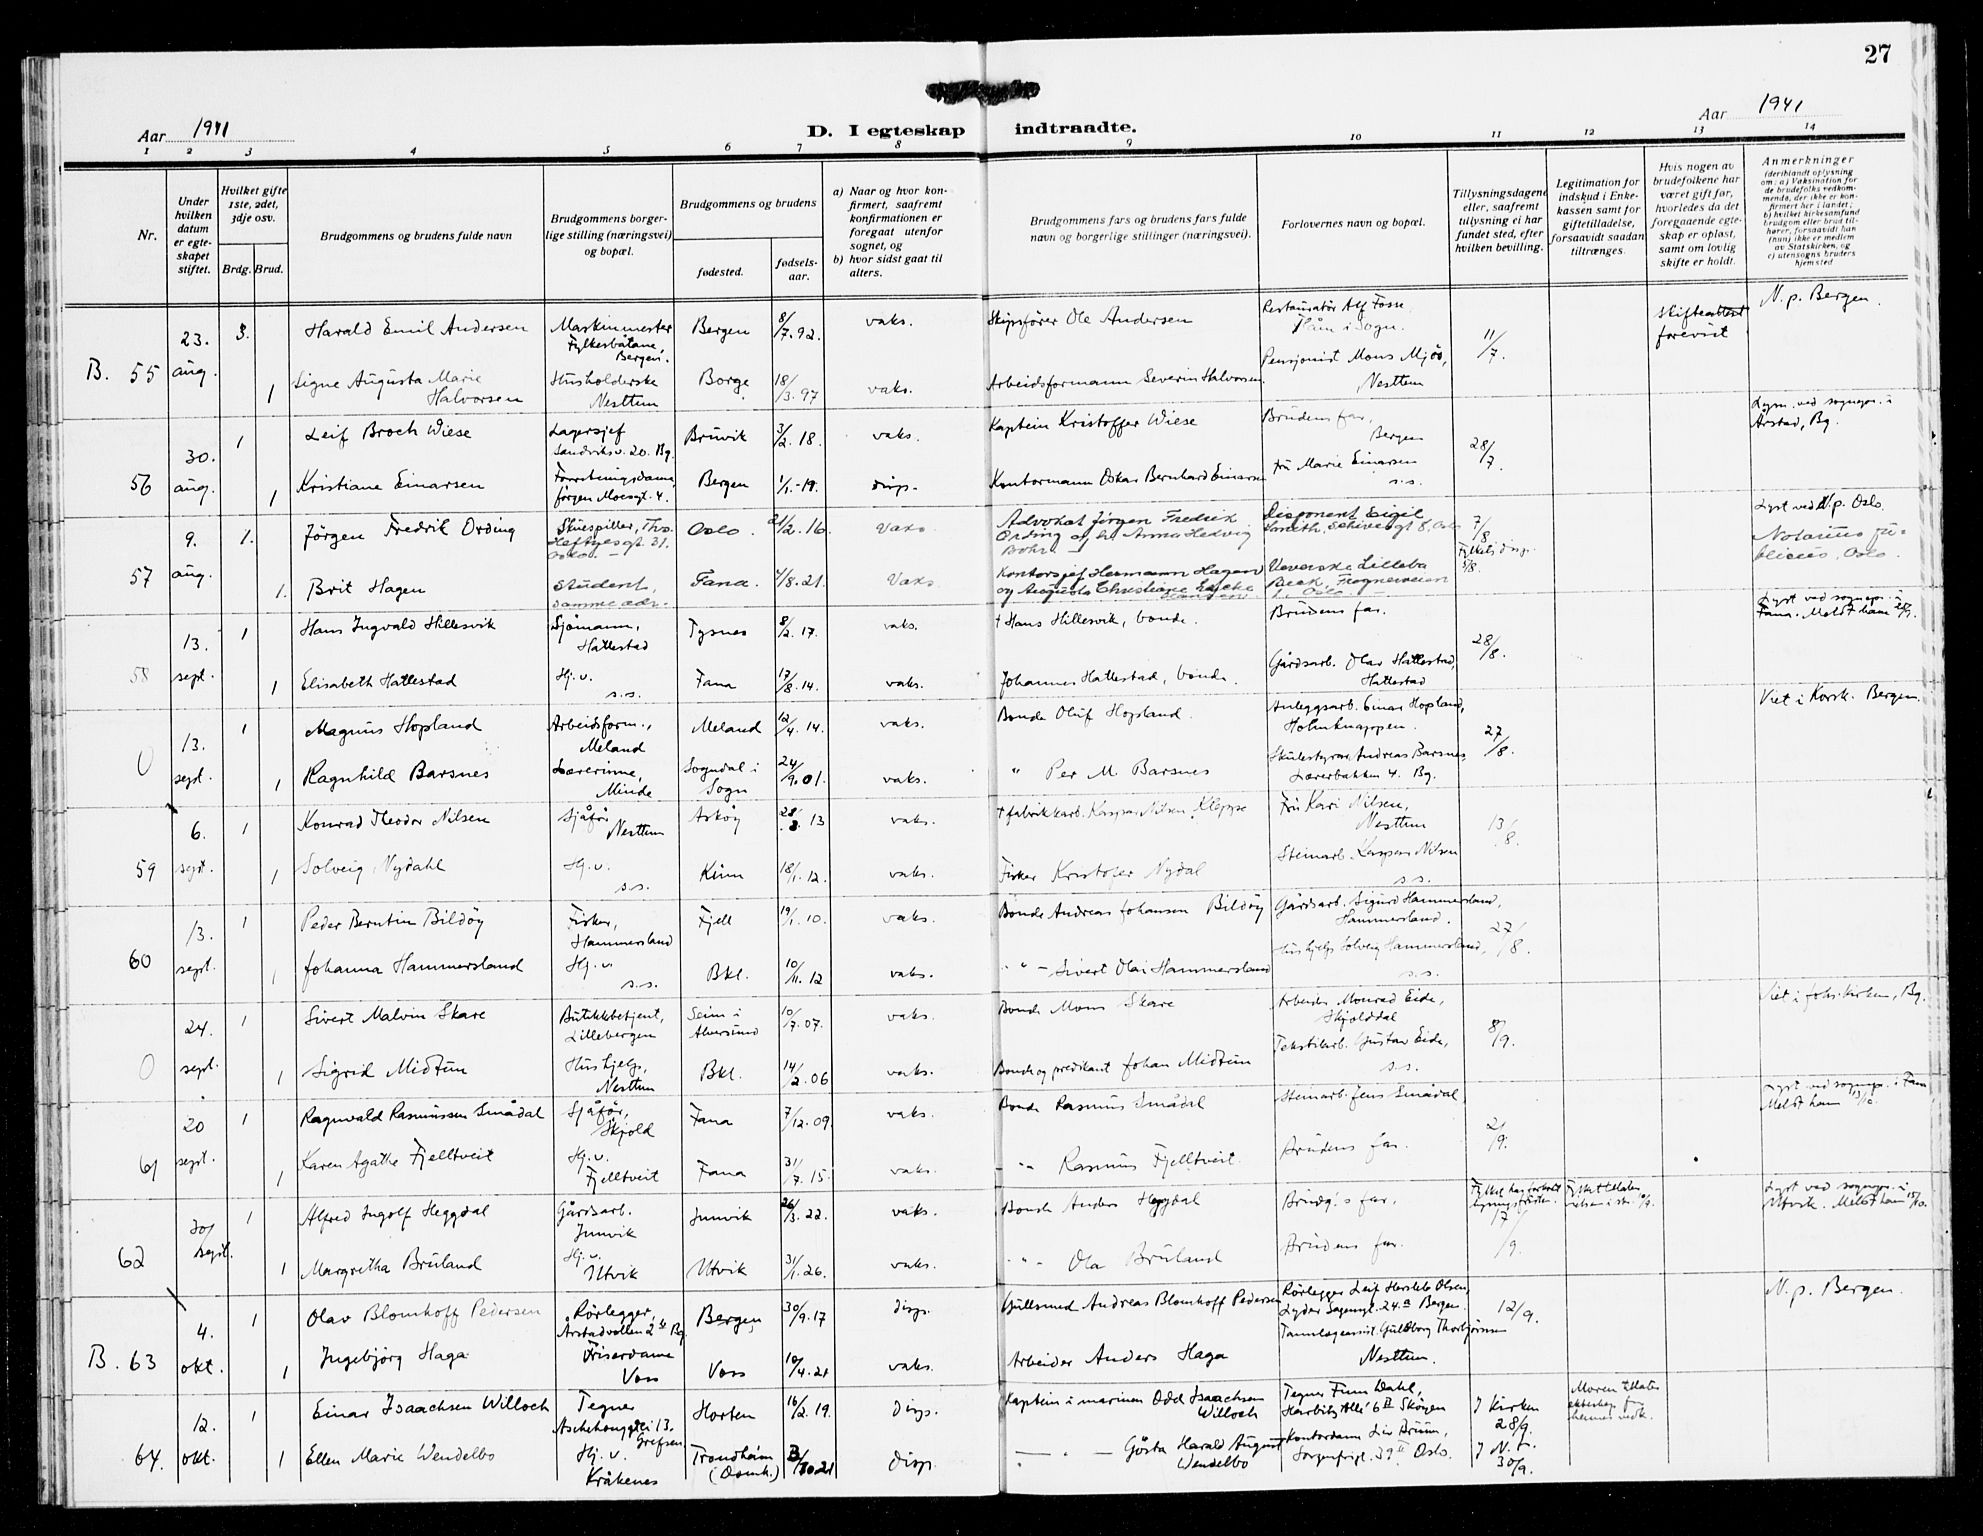 27
Aar 1941
D. I egteskap indtraadte.
Aar 1941
1 2 3 4 5 6 7 8 9 10 11 12 13 14
Nr.
Under hvilken datum er egte-skapet stiftet.
Hvilket gifte 1ste, 2det, 3dje osv.
Brdg. Brud.
Brudgommens og brudens fulde navn
Brudgommens borger-lige stilling (næringsvei) og bopæl.
Brudgommens og brudens
fødested.
fødsels-aar.
a) Naar og hvor kon-firmert, saafremt konfirmationen er foregaat utenfor sognet, og
b) hvor sidst gaat til alters.
Brudgommens fars og brudens fars fulde navn og borgerlige stillinger (næringsvei).
Forlovernes navn og bopæl.
Tillysningsdagene eller, saafremt tillysning ei har fundet sted, efter hvilken bevilling.
Legitimation for indskud i Enke-kassen samt for giftetilladelse, forsaavidt saadan tiltrænges.
Hvis nogen av brudefolkene har været gift før, hvorledes da det foregaaende egte-skap er opløst, samt om lovlig skifte er holdt.
Anmerkninger
(deriblandt oplysning om: a) Vaksination for de brudefolks vedkom-mende, der ikke er kon-firmert her i landet; b) hvilket kirkesamfund brudgom eller brud til-hører, forsaavidt han (hun) ikke er medlem av Statskirken, og c) utensogns bruders hjemsted
B. 55 23. aug. 3. Harald Emil Andersen Maskinmester Fylkesbåtane Bergen. Bergen 8/7.92. vaks. Skipsfører Ole Andersen Restauratør Alf Fosse Håm i Sogn. 11/7. Skifteattest forevist N.p. Bergen.
1 Signe Augusta Marie Halvorsen Husholderske Nesttun Borge 18/3.97 vaks. Arbeidsformann Severin Halvorsen Pensjonist Mons Mjøs, Nesttun
56 30. aug. 1 Leif Broch Wiese Lagersjef Sandviksv. 20. Bg. Bruvik 3/2.18. vaks. Kaptein Kristoffer Wiese Brudens far, Bergen 28/7. Lysn. ved sognepr. i Årstad, Bg.
1 Kristiane Einarsen Forretningsdame, Jørgen Moesgt. 4. Bergen 1/1.-19. disp. Kontormann Oskar Bernhard Einarsen Fru Marie Einarsen s.s.
57 9. aug. 1. Jörgen Fredrik Ording Skuespiller, Ths. Heftyesgt. 31. Oslo. Oslo 21/2.16 Vaks Advokat Jørgen Fredrik Ording og hr. Anna Hedvig Bohr. Disponent Eigil Smith, Schivesgt 8, Oslo 7/8 Fylkets disp. 5/8. Lyst ved N.p. Oslo. Notarius publicus, Oslo.
1. Brit Hagen Student, samme adr. Fana. 4/8.21. Vaks Kontorsjef Hermann Hagen og Augusta Christiane Lilleba Beck, Frognerveien 1, Oslo.
58 13. sept. 1 Hans Ingvald Hillesvik Sjömann, Hattestad Tysnes 8/2.17. vaks. † Hans Hillesvik, bonde. Brudens far. 28/8. Lyst ved sognepr. i Fana. Meldt ham
1 Elisabeth Hattestad Hj.v. s.s. Fana 17/8.14. vaks. Johannes Hattestad, bonde. Gårdsarb. Olav Hattestad, Hattestad
0 13. sept. 1 Magnus Hopland Arbeidsform., Meland Meland 12/4.14. vaks. Bonde Oluf Hopland. Anleggsarb. Einar Hopland, Holmknappen. 27/8. Viet i Korsk. Bergen.
1 Ragnhild Barsnes Lærerinne, Minde Sogndal i Sogn 24/9.01. vaks. " Per M. Barsnes Skulestyrar Andreas Barsnes, Lærerbakken 4. Bg.
59 6. sept. 1 Konrad Theodor Nilsen Sjåfør Nesttun Askøy 28/3.13 vaks. † fabrikkarb. Kaspar Nilsen, Kleppe Fru Kari Nilsen, Nesttun 13/8.
1 Solveig Nydahl Hj.v. s.s. Kinn 18/1.12. vaks. Fisker Kristofer Nydal Steinarb. Kaspar Nilsen s.s.
60 13. sept. 1 Peder Berntin Bildöy Fisker, Hammersland Fjell 19/1.10. vaks. Bonde Andreas Johansen Bildöy Gårdsarb. Sigurd Hammersland, Hammersland. 27/8.
1 Johanna Hammersland Hj.v. s.s. Bkl. 10/11.12 vaks. " Sivert Olai Hammersland Hushjelp Solveig Hammersland, s.s.
0 24. sept. 1 Sivert Malvin Skare Butikkbetjent, Lillebergen Seim i Alversund 10/7.07. vaks. Bonde Mons Skare Arbeider Monrad Eide, Skjolddal 8/9. Viet i Joh.kirken, Bg.
1 Sigrid Midtun Hushjelp, Nesttun Bkl. 14/2.06 vaks. Bonde og predikant Johan Midtun Tekstilarb. Gustav Eide, s.s.
61 20 sept. 1 Ragnvald Rasmussen Smådal Sjåför, Skjold Fana 7/12.09. vaks. Bonde Rasmus Smådal Steinarb. Jens Smådal 2/9. Lyst ved sognepr. i Fana Meldt ham 13/10.
1 Karen Agathe Fjelltveit Hj.v. Fjelltveit Fana 31/7.15. vaks. " Rasmus Fjelltveit. Brudens far.
62 20/ sept. 1 Alfred Ingolf Heggdal Gårdsarb. Innvik Innvik 26/3.22. vaks. Bonde Anders Heggdal Brudg.'s far, 17/9. Lyst ved sognepr. i Utvik. Meldt ham 15/10.
1 Margretha Bruland Hj.v. Utvik Utvik 31/1.26. vaks. " Ola Bruland Brudens far.
B. 63 4. okt. 1 Olav Blomhoff Pedersen Rørlegger, Årstadvollen 2 Bg. Bergen 30/9.17 disp. Gullsmed Andreas Blomhoff Pedersen Rørlegger Leif Hersleb Olsen, Lyder Sagensgt. 24a Bergen. 12/9. N.p. Bergen.
1 Ingebjörg Haga Friserdame Voss Voss 10/4.21 vaks. Arbeider Anders Haga Tannlegeassist. Guldborg Thorbjörnsen Nesttun.
64. 12. okt. 1 Einar Isaachsen Willoch Tegner Aschehougvei 13. Grefsen Horten 16/2.19. Disp. Kaptein i marinen Odd Isaachsen Willoch Tegner Finn Dahl, Harbitz Allé 6 Skøyen I kirken 28/9. Moren tillater ekteskap for hennes vedk.
1 Ellen Marie Wendelbo Hj.v. Kråkenes Trondheim (Domk.) 3/10.21 disp. " Gösta Harald August Wendelbo Kontordam. Liv Bruun, Sorgenfrigt. 39 Oslo. I N.T. 30/9.